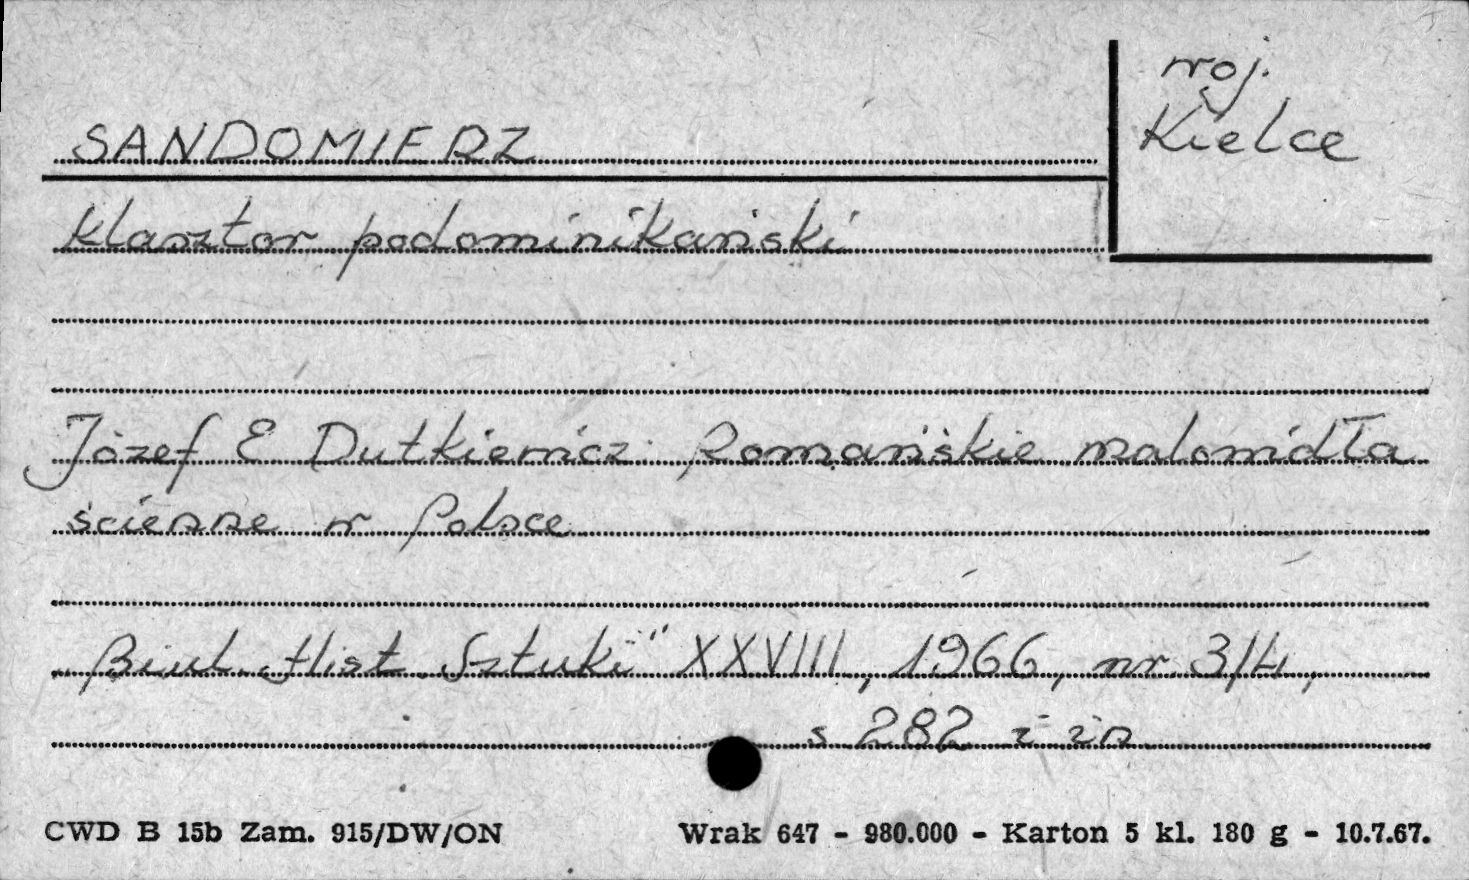 woj.
Kielce
SANDOMIERZ
klasztor podominikański
Józef E Dutkiewicz: Romańskie malowidła
ścienne w Polsce
„Biul. Hist. Sztuki" XXVIII, 1966, nr. 3/4,
s 282 i in
CWD B 15b Zam. 915/DW/ON
Wrak 647 - 980.000 - Karton 5 kl. 180 g - 10.7.67.